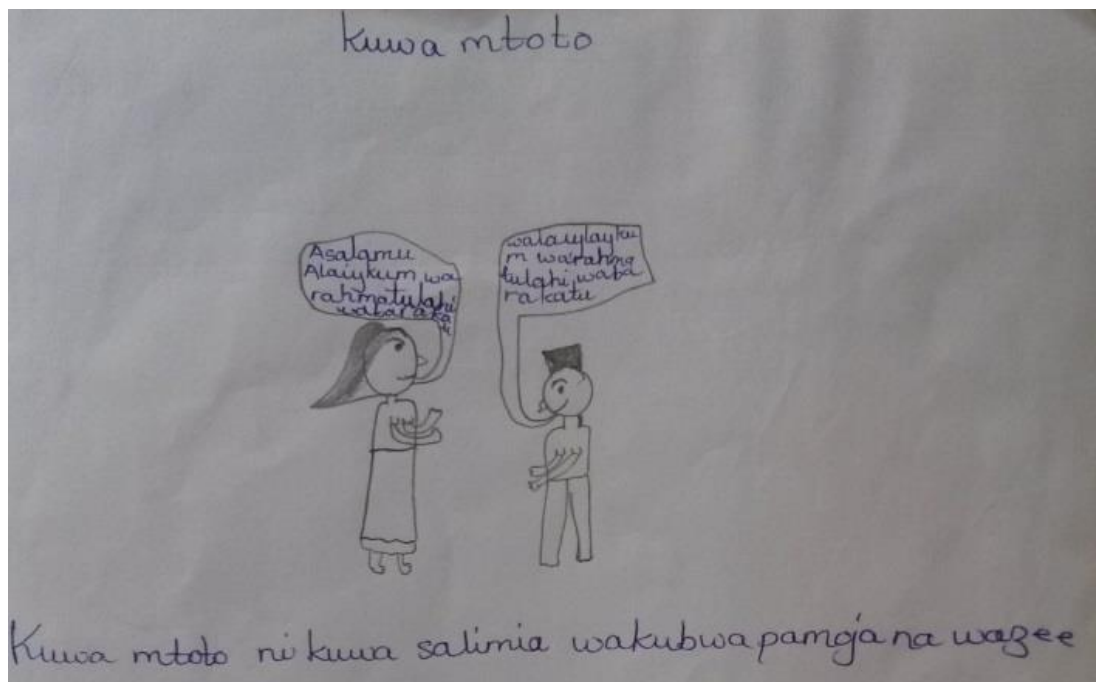 Kuwa mtoto
Asalamu
Alaiykum wa
rahmatulahi
wabarakatu
walaiylayku
m warahma
tulahi waba
rakatu
Kuwa mtoto ni kuwa salimia wakubwa pamoja na wazee